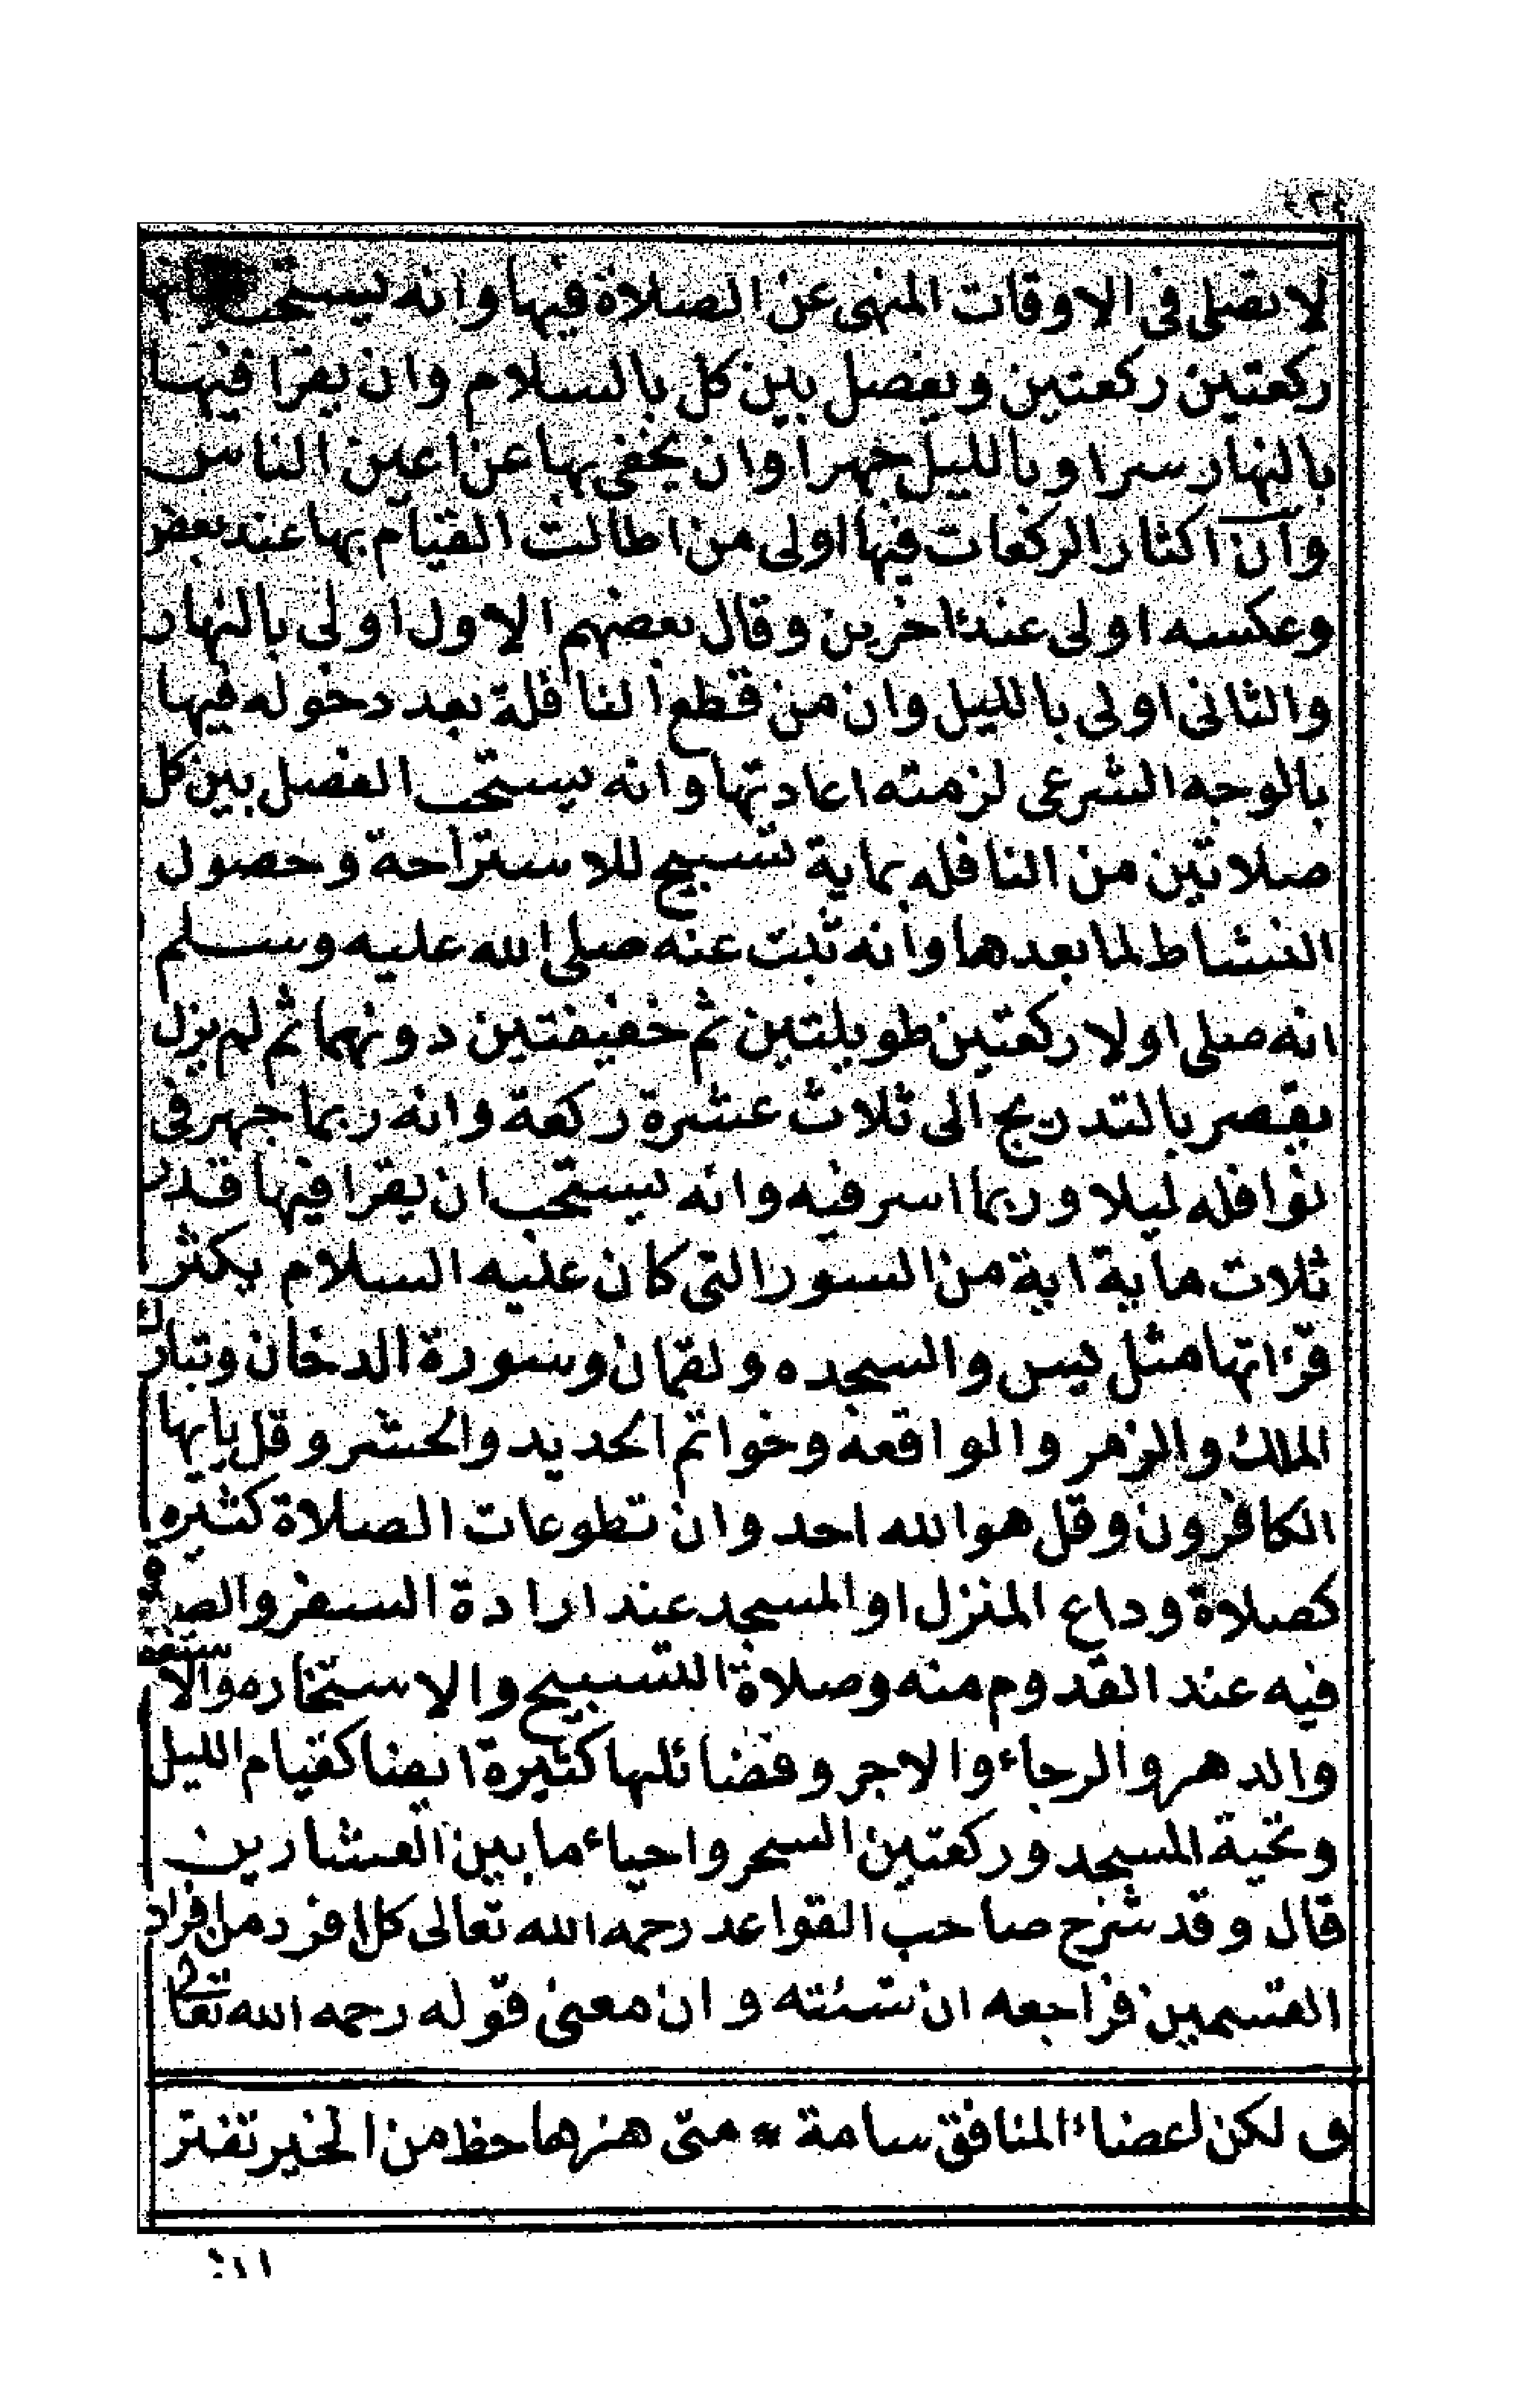 لا تصلى فى الاوقات المنهى عن الصلاة فيها وانه يستحب
ركعتين ركعتين ويفصل بين كل بالسلام وان يقرا فيها
بالنهار سرا وبالليل جهرا وان يخفى بها عن اعين الناس
وان اكثار الركعات فيها اولى من اطالت القيام بها عند بعض
وعكسه اولى عند اخرين وقال بعضهم الاول اولى بالنهار
والثانى اولى بالليل وان من قطع النافلة بعد دخوله فيها
بالوجه الشرعى لزمته اعادتها وانه يستحب الفصل بين كل
صلاتين من النافله بماية تسبيح للاستراحة وحصول
النشاط لما بعدها وانه ثبت عنه صلى الله عليه وسلم
انه صلى اولا ركعتين طويلتين ثم خفيفتين دونهما ثم لم يزل
يقصر بالتدريج الى ثلاث عشرة ركعة وانه ربما جهر فى
نوافله ليلا وربما اسر فيه وانه يستحب ان يقرا فيها قدر
ثلاث ماية اية من السور التى كان عليه السلام يكثر
قرٰاتها مثل يس والسجده ولقمان وسورة الدخان وتبارك
الملك والزمر والواقعه وخواتم الحديد والحشر وقل يايها
الكافرون وقل هو الله احد وان تطوعات الصلاة كثيره
كصلاة وداع المنزل او المسجد عند ارادة السفر والصلاة
فيه عند القدوم منه وصلاة التسبيح والاستخاره والاستغفار
والدهر والرجاء والاجر وفضائلها كثيرة ايضا كقيام الليل
وتحية المسجد وركعتين السحر واحياء ما بين العشارين
قال وقد شرح صاحب القواعد رحمه الله تعالى كل فرد من افراد
القسمين فراجعه ان شئته وان معنى قوله رحمه الله تعالى
ف لكن لعضاء المنافق سامة * متى هزها حظ من الخير تفتر